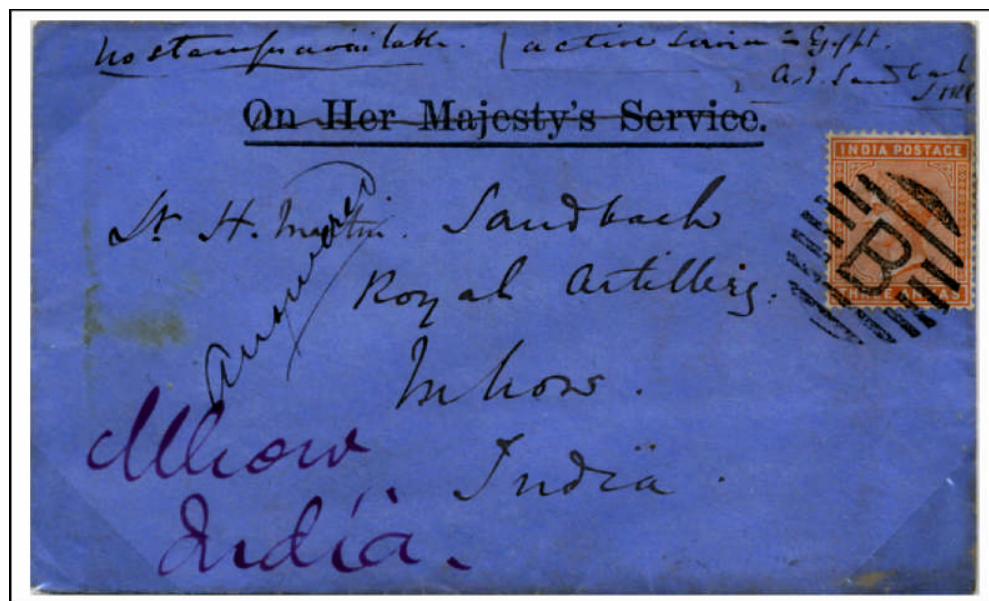 No stamps available. active service in Egypt.
A.E. Sandbach
On Her Majesty's Service.
INDIA POSTAGE
B
THREE ANNAS
Lt H. Martin. Sandbach
Royal Artillery.
answered
Mhow.
India.
Mhow
India.